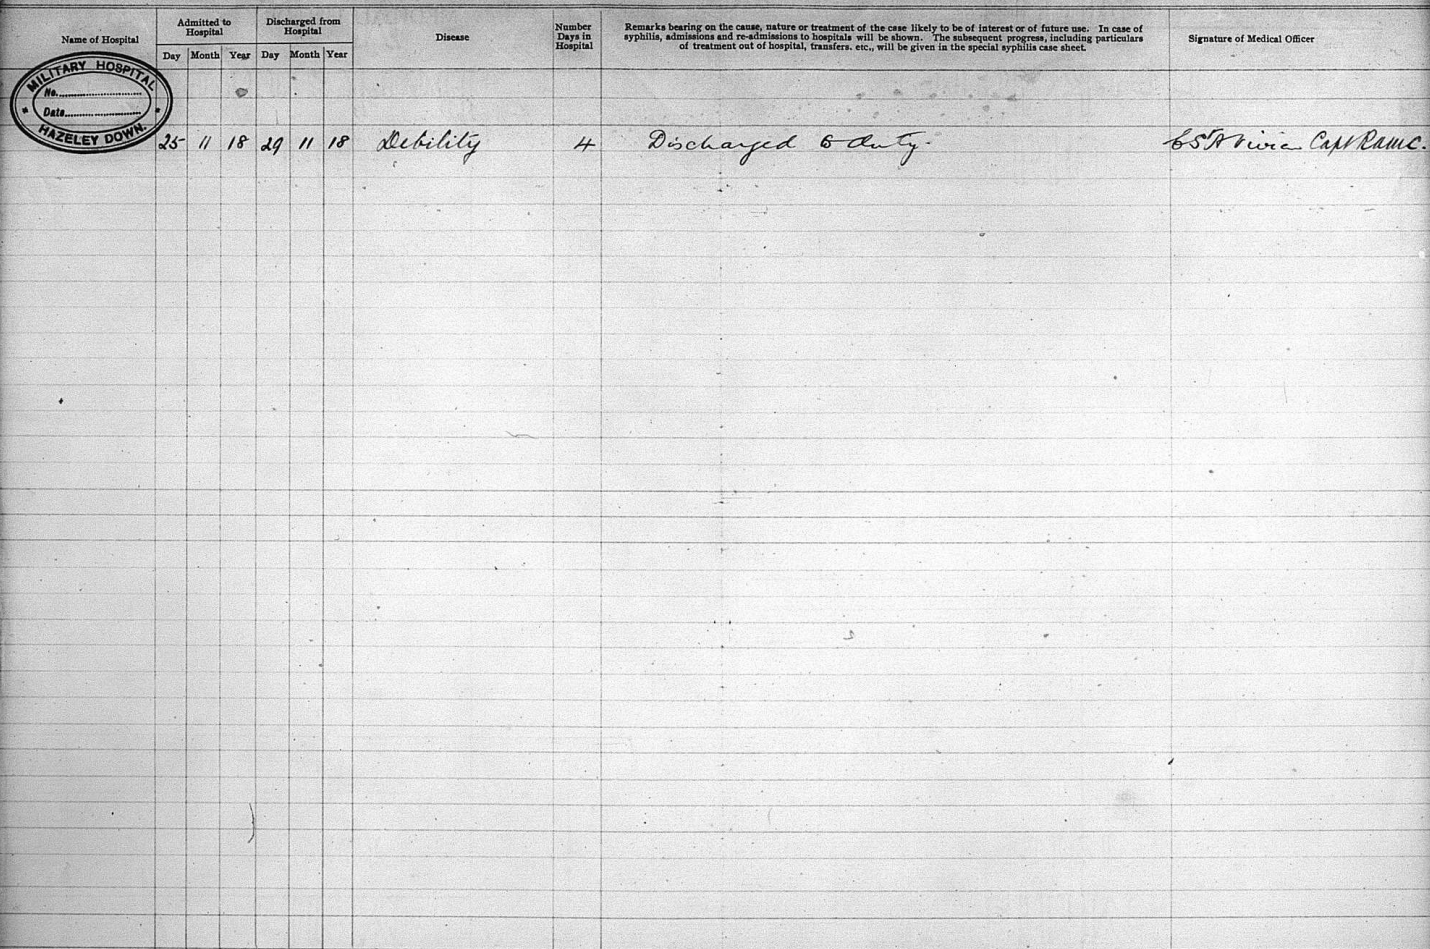 Name of Hospital
Admitted to
Hospital
Day Month Year
Discharged from
Hospital
Day Month Year
Disease
Number
Days in
Hospital
Remarks bearing on the cause, nature or treatment of the case likely to be of interest or of future use. In case of
syphilis, admissions and re-admissions to hospitals will be shown. The subsequent progress, including particulars
of treatment out of hospital, transfers. etc., will be given in the special syphilis case sheet.
Signature of Medical Officer
MILITARY HOSPITAL
No.
Date
HAZELEY DOWN.
25 11 18 29 11 18 Debility 4 Discharged to duty. Vivian Capt RAMC.